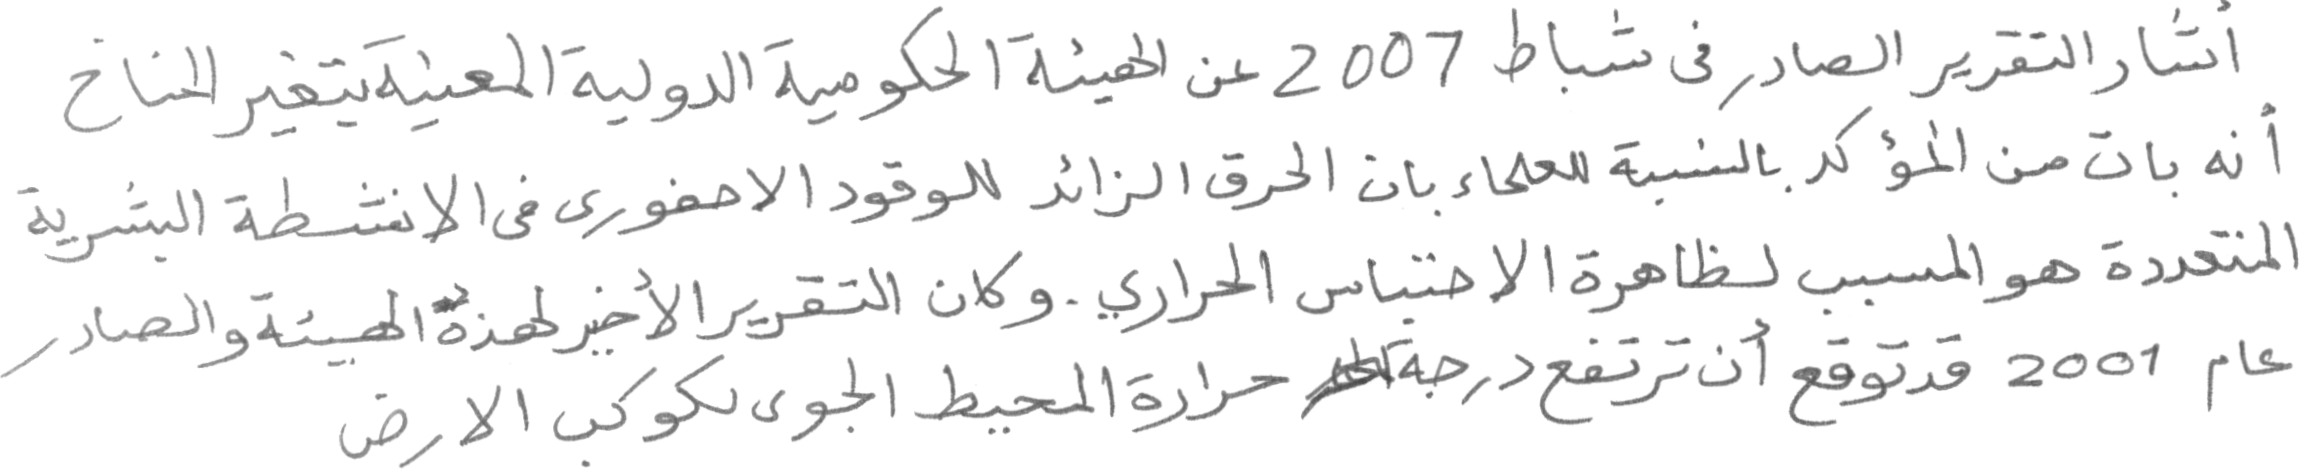 أشار التقرير الصادر فى شباط 2007 عن الهيئة الحكومية الدولية المعنية بتغير المناخ
أنه بات من المؤكد بالنسبة للعلماء بان الحرق الزائد للوقود الاحفورى فى الانشطة البشرية
المتعددة هو المسبب لظاهرة الاحتباس الحراري. وكان التقرير الأخير لهذه الهيئة والصادر
عام 2001 قد توقع أن ترتفع درجة حرارة المحيط الجوى لكوكب الارض